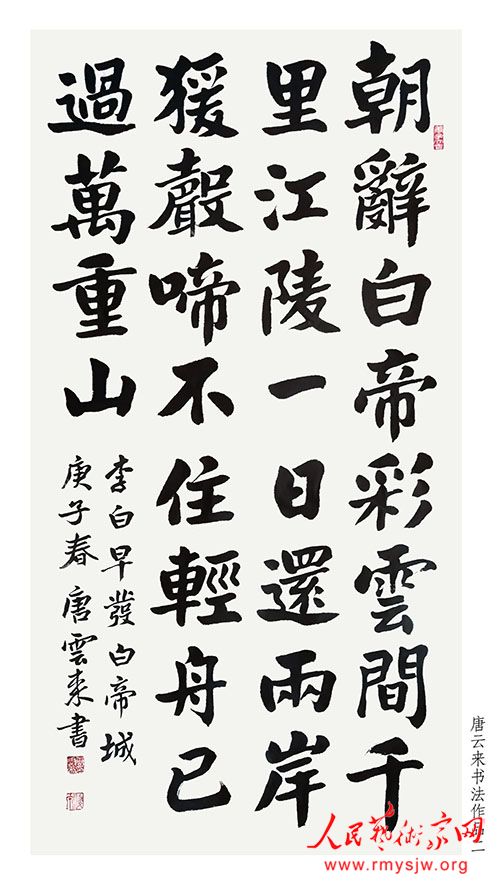 朝辭白帝彩雲間千
里江陵一日還兩岸
猨聲啼不住輕舟已
過萬重山
李白早發白帝城
庚子春唐雲来書
唐云来书法作品二
人民藝術家网
www.rmysjw.org